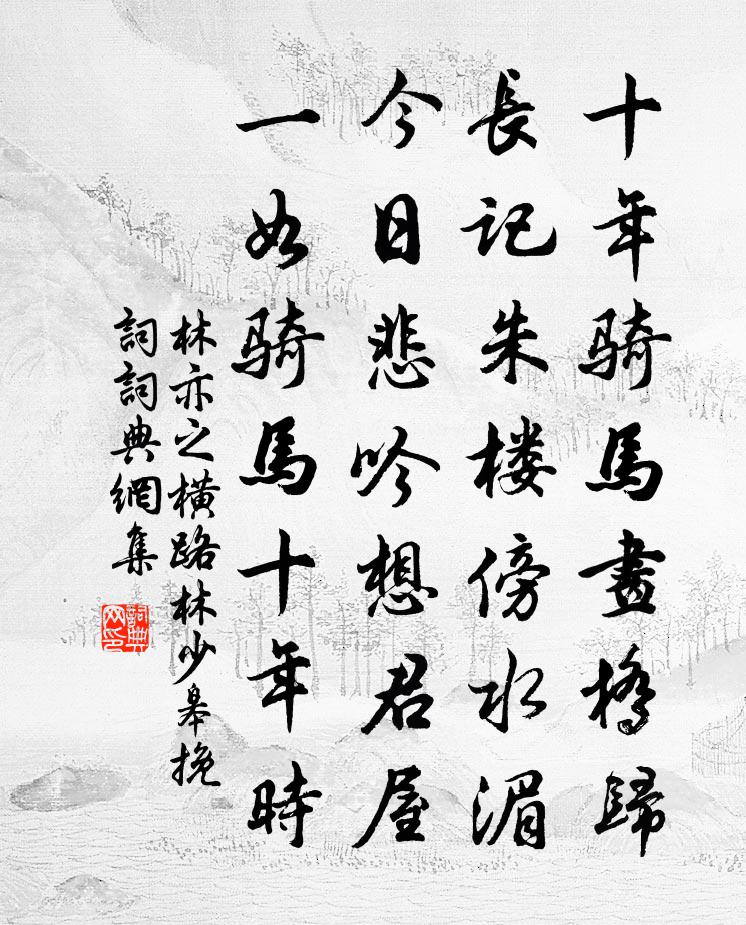 十年騎馬畫橋歸
長記朱楼傍水湄
今日悲吟想君屋
一如騎馬十年時
林亦之橫路林少皋挽
詞詞典網集
詞典
网印